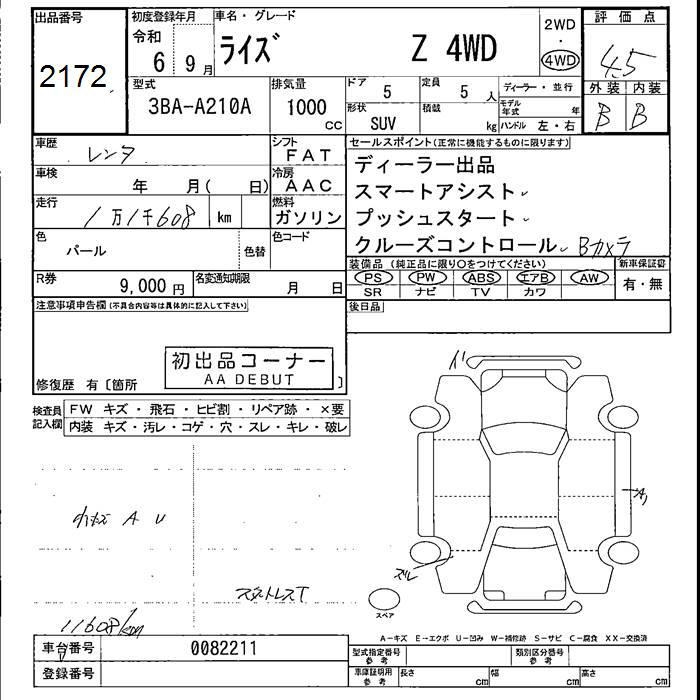 出品番号 2172
初度登録年月 令和 6 9月
車名・グレード ライズ Z 4WD
2WD・4WD
評価点 4.5
外装 内装
B B
型式 3BA-A210A
排気量 1000 CC
ドア 5
定員 5 人
ディーラー・並行
形状 SUV
積載 kg
モデル年式 年
ハンドル 左・右
車歴 レンタ
シフト FAT
車検 年 月( 日)
冷房 AAC
走行 1万1千608 km
燃料 ガソリン
色 パール 色替
色コード
R券 9,000 円
名変通知期限 月 日
セールスポイント(正常に機能するものに限ります)
ディーラー出品
スマートアシスト
プッシュスタート
クルーズコントロール Bカメラ
装備品(純正品に限り○をつけてください)
新車保証書
PS PW ABS エアB AW
有・無
SR ナビ TV カワ
後日品
注意事項申告欄(不具合内容等は具体的に記入して下さい)
初出品コーナー
AA DEBUT
修復歴 有〔箇所 〕
検査員記入欄
FW キズ・飛石・ヒビ割・リペア跡・×要
内装 キズ・汚レ・コゲ・穴・スレ・キレ・破レ
A U
11608/km
スペア
A-キズ E-エクボ U-凹み W-補修跡 S-サビ C-腐食 XX-交換済
車台番号 0082211
登録番号
型式指定番号 参考
類別区分番号 参考
車庫証明用 参考 長さ cm 幅 cm 高さ cm